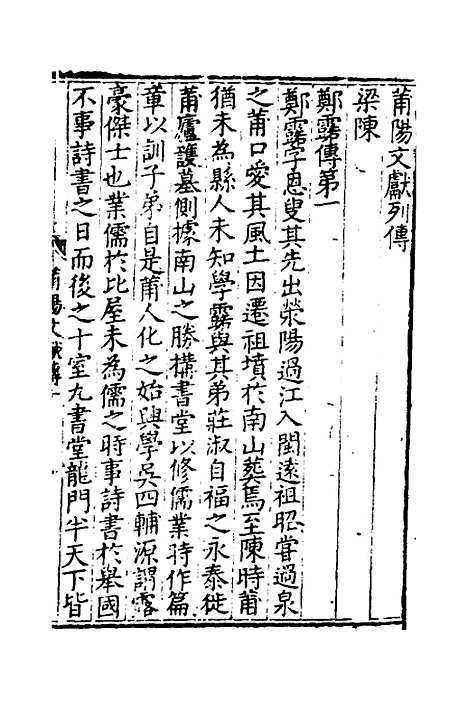 莆陽文獻列傳
梁陳
鄭露傳第一
鄭露字恩叟其先出滎陽過江入閩遠祖昭嘗過泉
之莆口愛其風土因遷祖墳於南山葬焉至陳時莆
猶未為縣人未知學露與其弟莊淑自福之永泰徙
莆廬護墓側據南山之勝構書堂以修儒業時作篇
章以訓子弟自是莆人化之始興學吳四輔源謂露
豪傑士也業儒於比屋未為儒之時事詩書於舉國
不事詩書之日而後之十室九書堂龍門半天下皆
莆陽文獻傳一